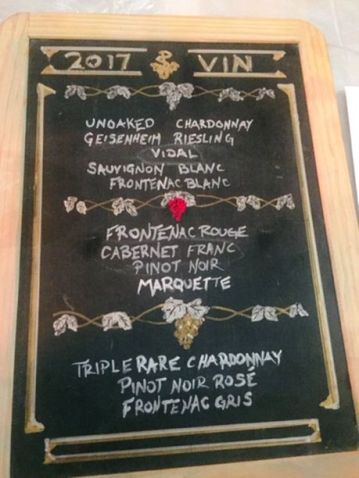 2017 VIN
UNOAKED CHARDONNAY
GEISENHEIM RIESLING
VIDAL
SAUVIGNON BLANC
FRONTENAC BLANC
FRONTENAC ROUGE
CABERNET FRANC
PINOT NOIR
MARQUETTE
TRIPLE RARE CHARDONNAY
PINOT NOIR ROSÉ
FRONTENAC GRIS